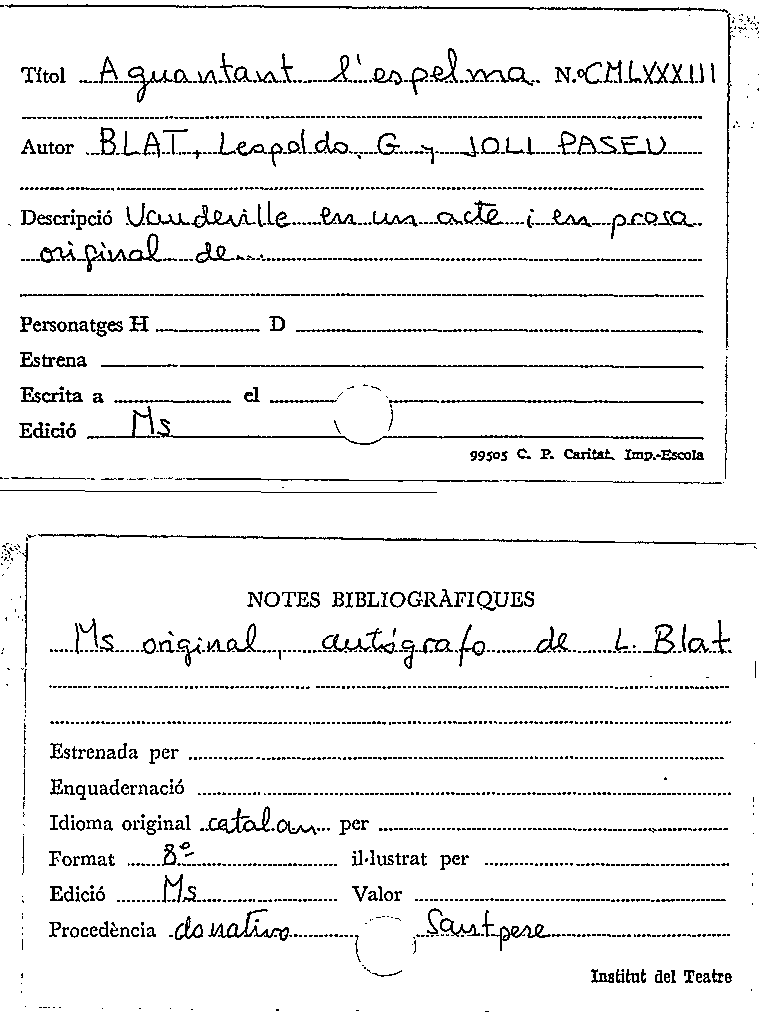 Títol Aguantant l'espelma N.º CMLXXXIII
Autor BLAT, Leopoldo, G y JOLI PASEU
Descripció Vaudeville en un acte i en prosa
original de...
Personatges H D
Estrena
Escrita a el
Edició Ms
99505 C. P. Caritat. Imp.-Escola
NOTES BIBLIOGRÀFIQUES
Ms original, autógrafo de L. Blat
Estrenada per
Enquadernació
Idioma original catalan per
Format 8º il·lustrat per
Edició Ms Valor
Procedència donativo Santpere
Institut del Teatre